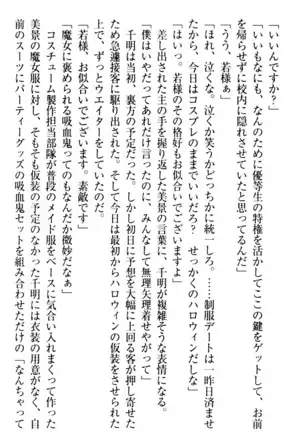 「いいんですか？」
「いいもなにも、なんのために優等生の特権を活かしてここの鍵をゲットして、お前
を帰らせずに校内に隠れさせていたと思ってるんだ」
「うう、若様ぁ」
「ほれ、泣くな。泣くか笑うかどっちかに統一しろ。……制服デートは一昨日済ませ
たから、今日はコスプレのままでいいだろ？　せっかくのハロウィンだしな」
「はいっ。若様のその格好もお似合いでございますよ」
差し出された主の手を握り返した美景の言葉に、千明が複雑そうな表情になる。
「僕はいやだってあれだけ言ったのに、みんなして無理矢理着せやがって」
千明は当初、裏方の予定だった。しかし初日に予想を大幅に上回る客が押し寄せた
ため急遽接客に駆り出された。そして今日は最初からハロウィンの仮装をさせられた
上で、ずっとウエイターをしていたのだ。
「若様、お似合いでございます。素敵です」
「魔女に褒められる吸血鬼ってのもなんだか微妙だなぁ」
コスチューム製作担当部隊が普段のメイド服をベースに気合い入れまくって作った
美景の魔女服に対し、そもそも仮装の予定のなかった千明には衣装の用意がなく、自
前のスーツにパーティーグッズの吸血鬼セットを組み合わせただけの「なんちゃって